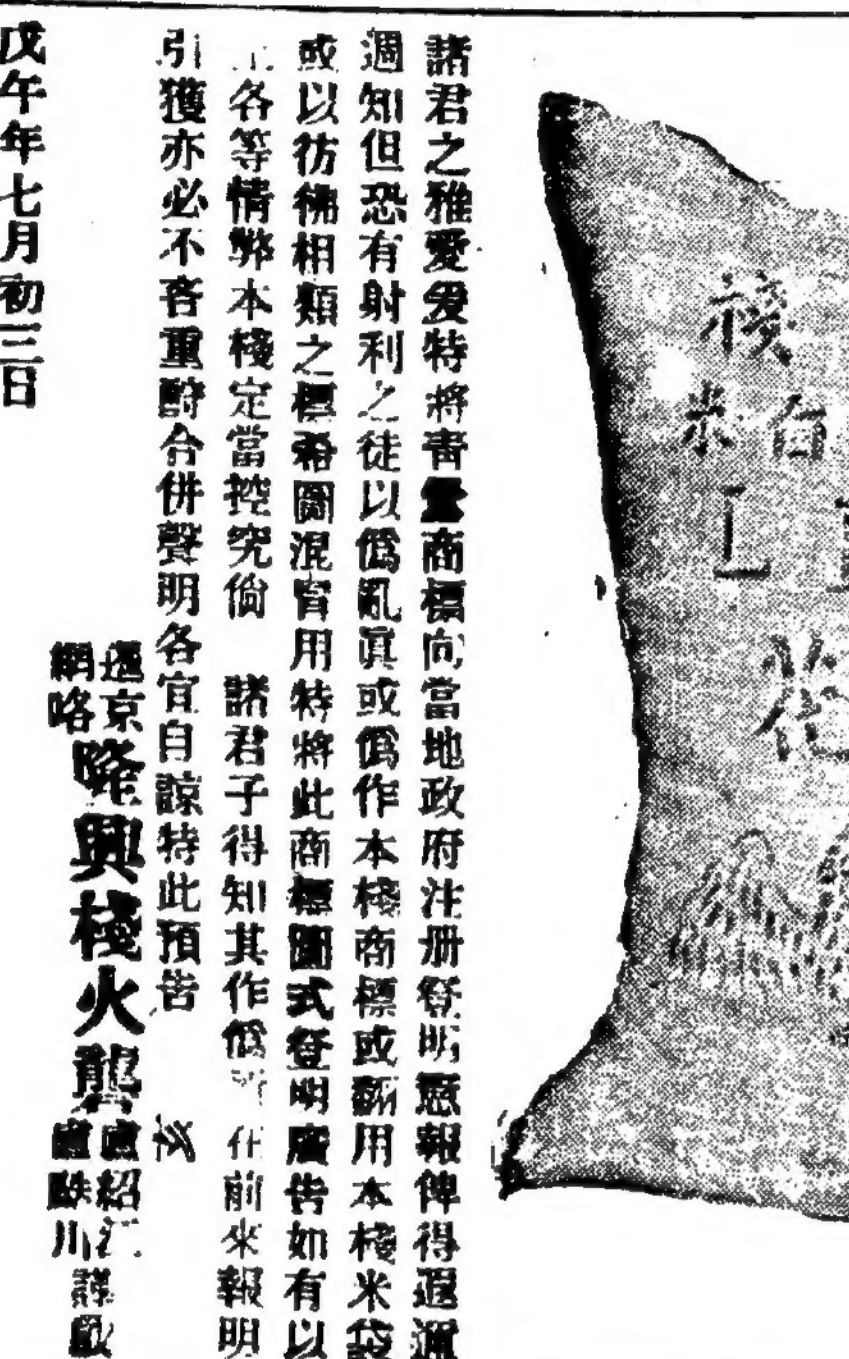 棧
白米
諸君之雅愛爰特將書商標向當地政府注册登明憲報俾得遐邇
週知但恐有射利之徒以僞亂眞或僞作本棧商標或翻用本棧米袋
或以彷彿相類之標希圖混冒用特將此商標圖式登明廣告如有以
上各等情弊本棧定當控究倘 諸君子得知其作僞所在前來報明
引獲亦必不吝重酧合併聲明各宜自諒特此預告
暹京網咯 隆興棧火礱 盧紹 盧川 謹啟
戊午年七月初三日